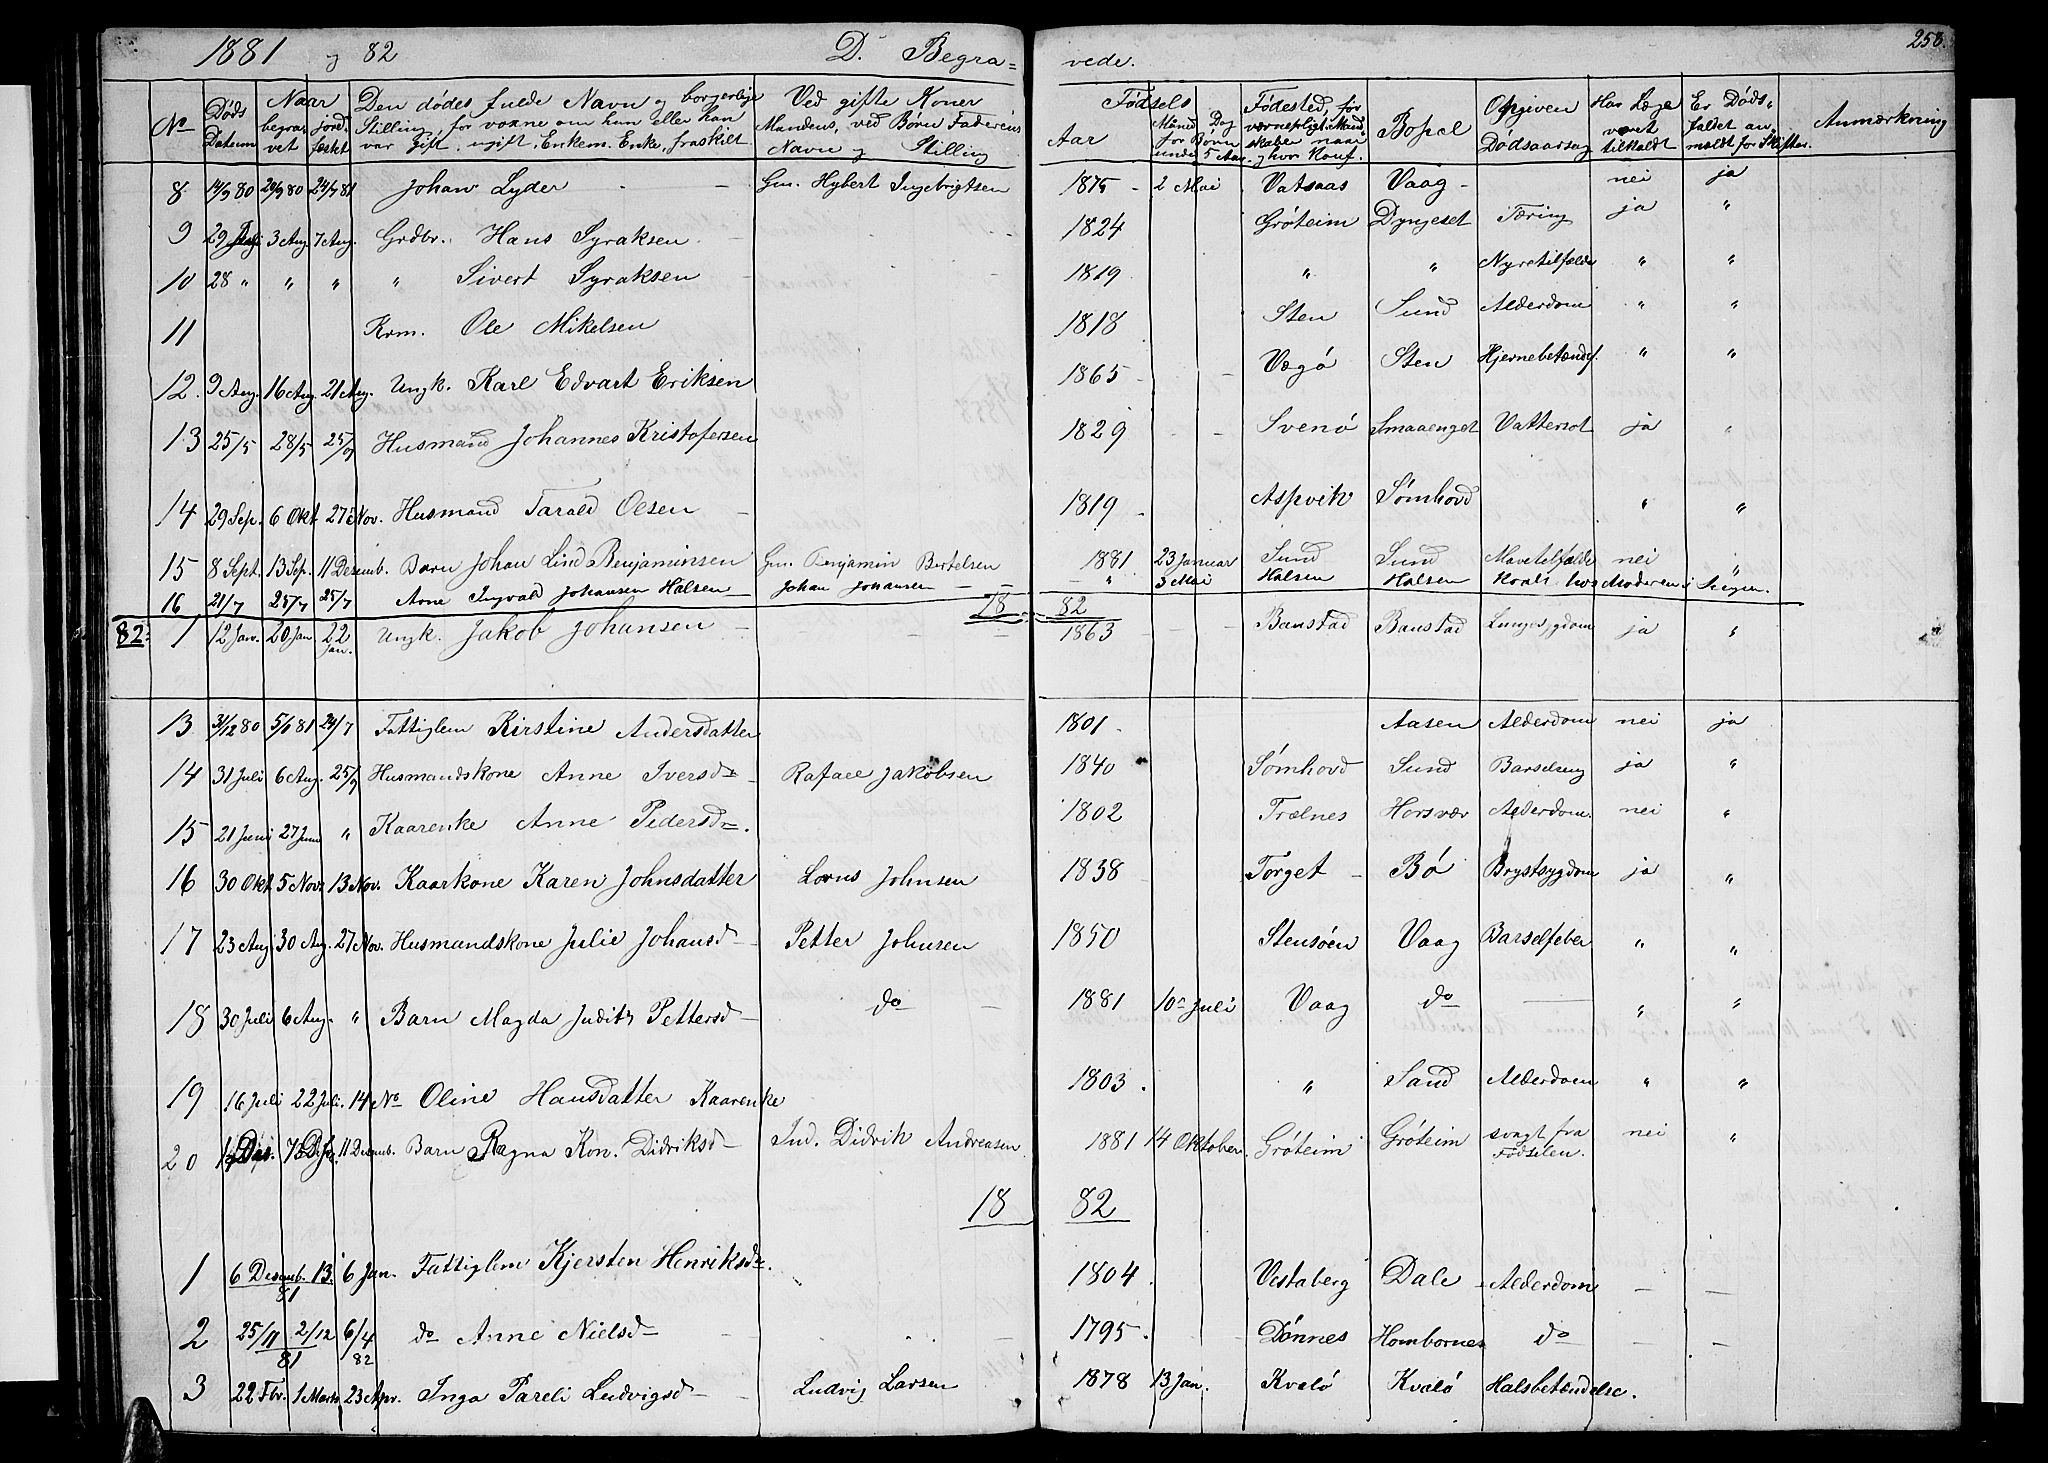 1881 og 82 D. Begra= vede. 258.
No Døds Datum Naar begravet jordfæstet Den dødes fulde Navn og borgerlige Stilling, for voxne om han eller hun var gift, ugift, Enkem. Enke, fraskilt Ved gifte Koner Mandens, ved Børn Faderens Navn og Stilling Fødsels Aar Maaned Dag for Børn under 5 Aar Fødested, for værnepligt. Mandskaber naar og hvor Konf. Bopæl Opgiven Dødsaarsag Har Læge været tilkaldt Er Dødsfaldet anmeldt for Skiftet Anmærkning
8 14/9 80 20/9 80 24/7 81 Johan Lyder Gm. Hybert Ingebrigtsen 1875 2 Mai Vatsaas Vaag nei ja
9 29 Juli 3 Aug. 7 Aug. Grdbr. Hans Syraksen 1824 Grøteim Dyngeset Tæring ja "
10 28 " " " " Sivert Syraksen 1819 " " Nyretilfælde " "
11 Krm. Ole Mikelsen 1818 Sten Sund Alderdom " "
12. 9 Aug. 16 Aug. 21 Aug. Ungk. Karl Edvart Eriksen 1865 Vegø Sten Hjernebetændels. " "
13 25/5 28/5 25/9 Husmand Johannes Kristofersen 1829 Svenø Smaaenget Vattersot ja "
14 29 Sep. 6 Okt. 27 Nov. Husmand Tarald Olsen 1819 Aspvik Sømhovd " "
15 8 Sept. 13 Sep. 11 Desemb. Barn Johan Lind Benjaminsen Gm. Benjamin Bertelsen 1881 23 Januar Sund Sund Mavetilfælde nei "
16 21/7 25/7 25/7 Arne Ingvald Johansen Halsen Johan Johansen " 3 Mai Halsen Halsen Kvalt hos Moderen i Sengen.
18 82
82: 1 12 Jan. 20 Jan 22 Jan. Ungk. Jakob Johansen 1863 Baustad Baustad Lungesygdom ja "
13 31/12 80 5/1 81 24/7 Fattiglem Kirstine Andersdatter 1801 Aasen Alderdom nei ja
14 31 Juli 6 Aug. 25/9 Husmandskone Anne Iversd= Rafael Jakobsen 1840 Sømhovd Sund Barselseng ja "
15 21 Juni 27 Juni " Kaarenke Anne Pedersd=. 1802 Trælnes Horsvær Alderdom. nei "
16 30 Okt. 5 Novr 13 Nov. Kaarkone Karen Johnsdatter Lorns Johnsen 1838 Torget Bø Brystsygdom ja "
17 23 Aug. 30 Aug. 27 Nov. Husmandskone Julie Johansd= Petter Johnsen 1850 Stensøen Vaag Barselfeber " "
18 30 Juli 6 Aug. " Barn Magda Judith Pettersd= do 1881 10 Juli Vaag do " "
19 16 Juli 22 Juli. 14 No Oline Hansdatter Kaarenke 1803. " Sand Alderdom " "
20 11 Desemb. Barn Ragna Kon. Didriksd= Ind. Didrik Andreasen 1881 14 Oktober. Grøteim Grøteim svagt fra Fødselen. nei "
18 82
1 6 Desemb. 13. 81 6 Jan. Fattiglem Kjersten Henriksd=. 1804 Vestaberg Dale Alderdom
2 25/11 2/12 81 6/4 82 do Anne Nielsd= 1795. Dønnes Hombornes do
3 22 Fbr. 1 Marts 23 Apr. Inga Pareli Ludvigsd= Ludvig Larsen 1878 13 Jan. Kvalø Kvalø Halsbetændelse.